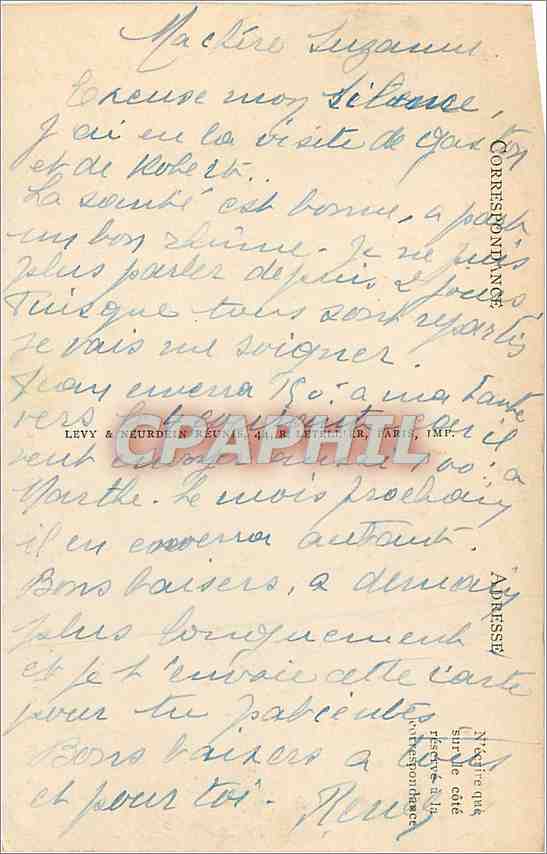 Ma chère Suzanne.
Excuse mon silence,
j'ai eu la visite de Gaston
et de Robert.
La santé est bonne, a part
un bon rhûme. Je ne puis
plus parler depuis 2 jours
Puisque tous sont repartis
je vais me soigner.
Jean enverra 150f a ma tante
vers le
LEVY & NEURDEIN RÉUNIS, 44, R. LETELLIER, PARIS, IMP.
CPAPHIL
100f a
Marthe. Le mois prochain
il en enverra autant.
Bons baisers, a demain
plus longuement
et je t'envoie cette carte
pour tu patientes
Bons baisers a tous
et pour toi. René
CORRESPONDANCE
ADRESSE
N'écrire que
sur le côté
réservé à la
correspondance